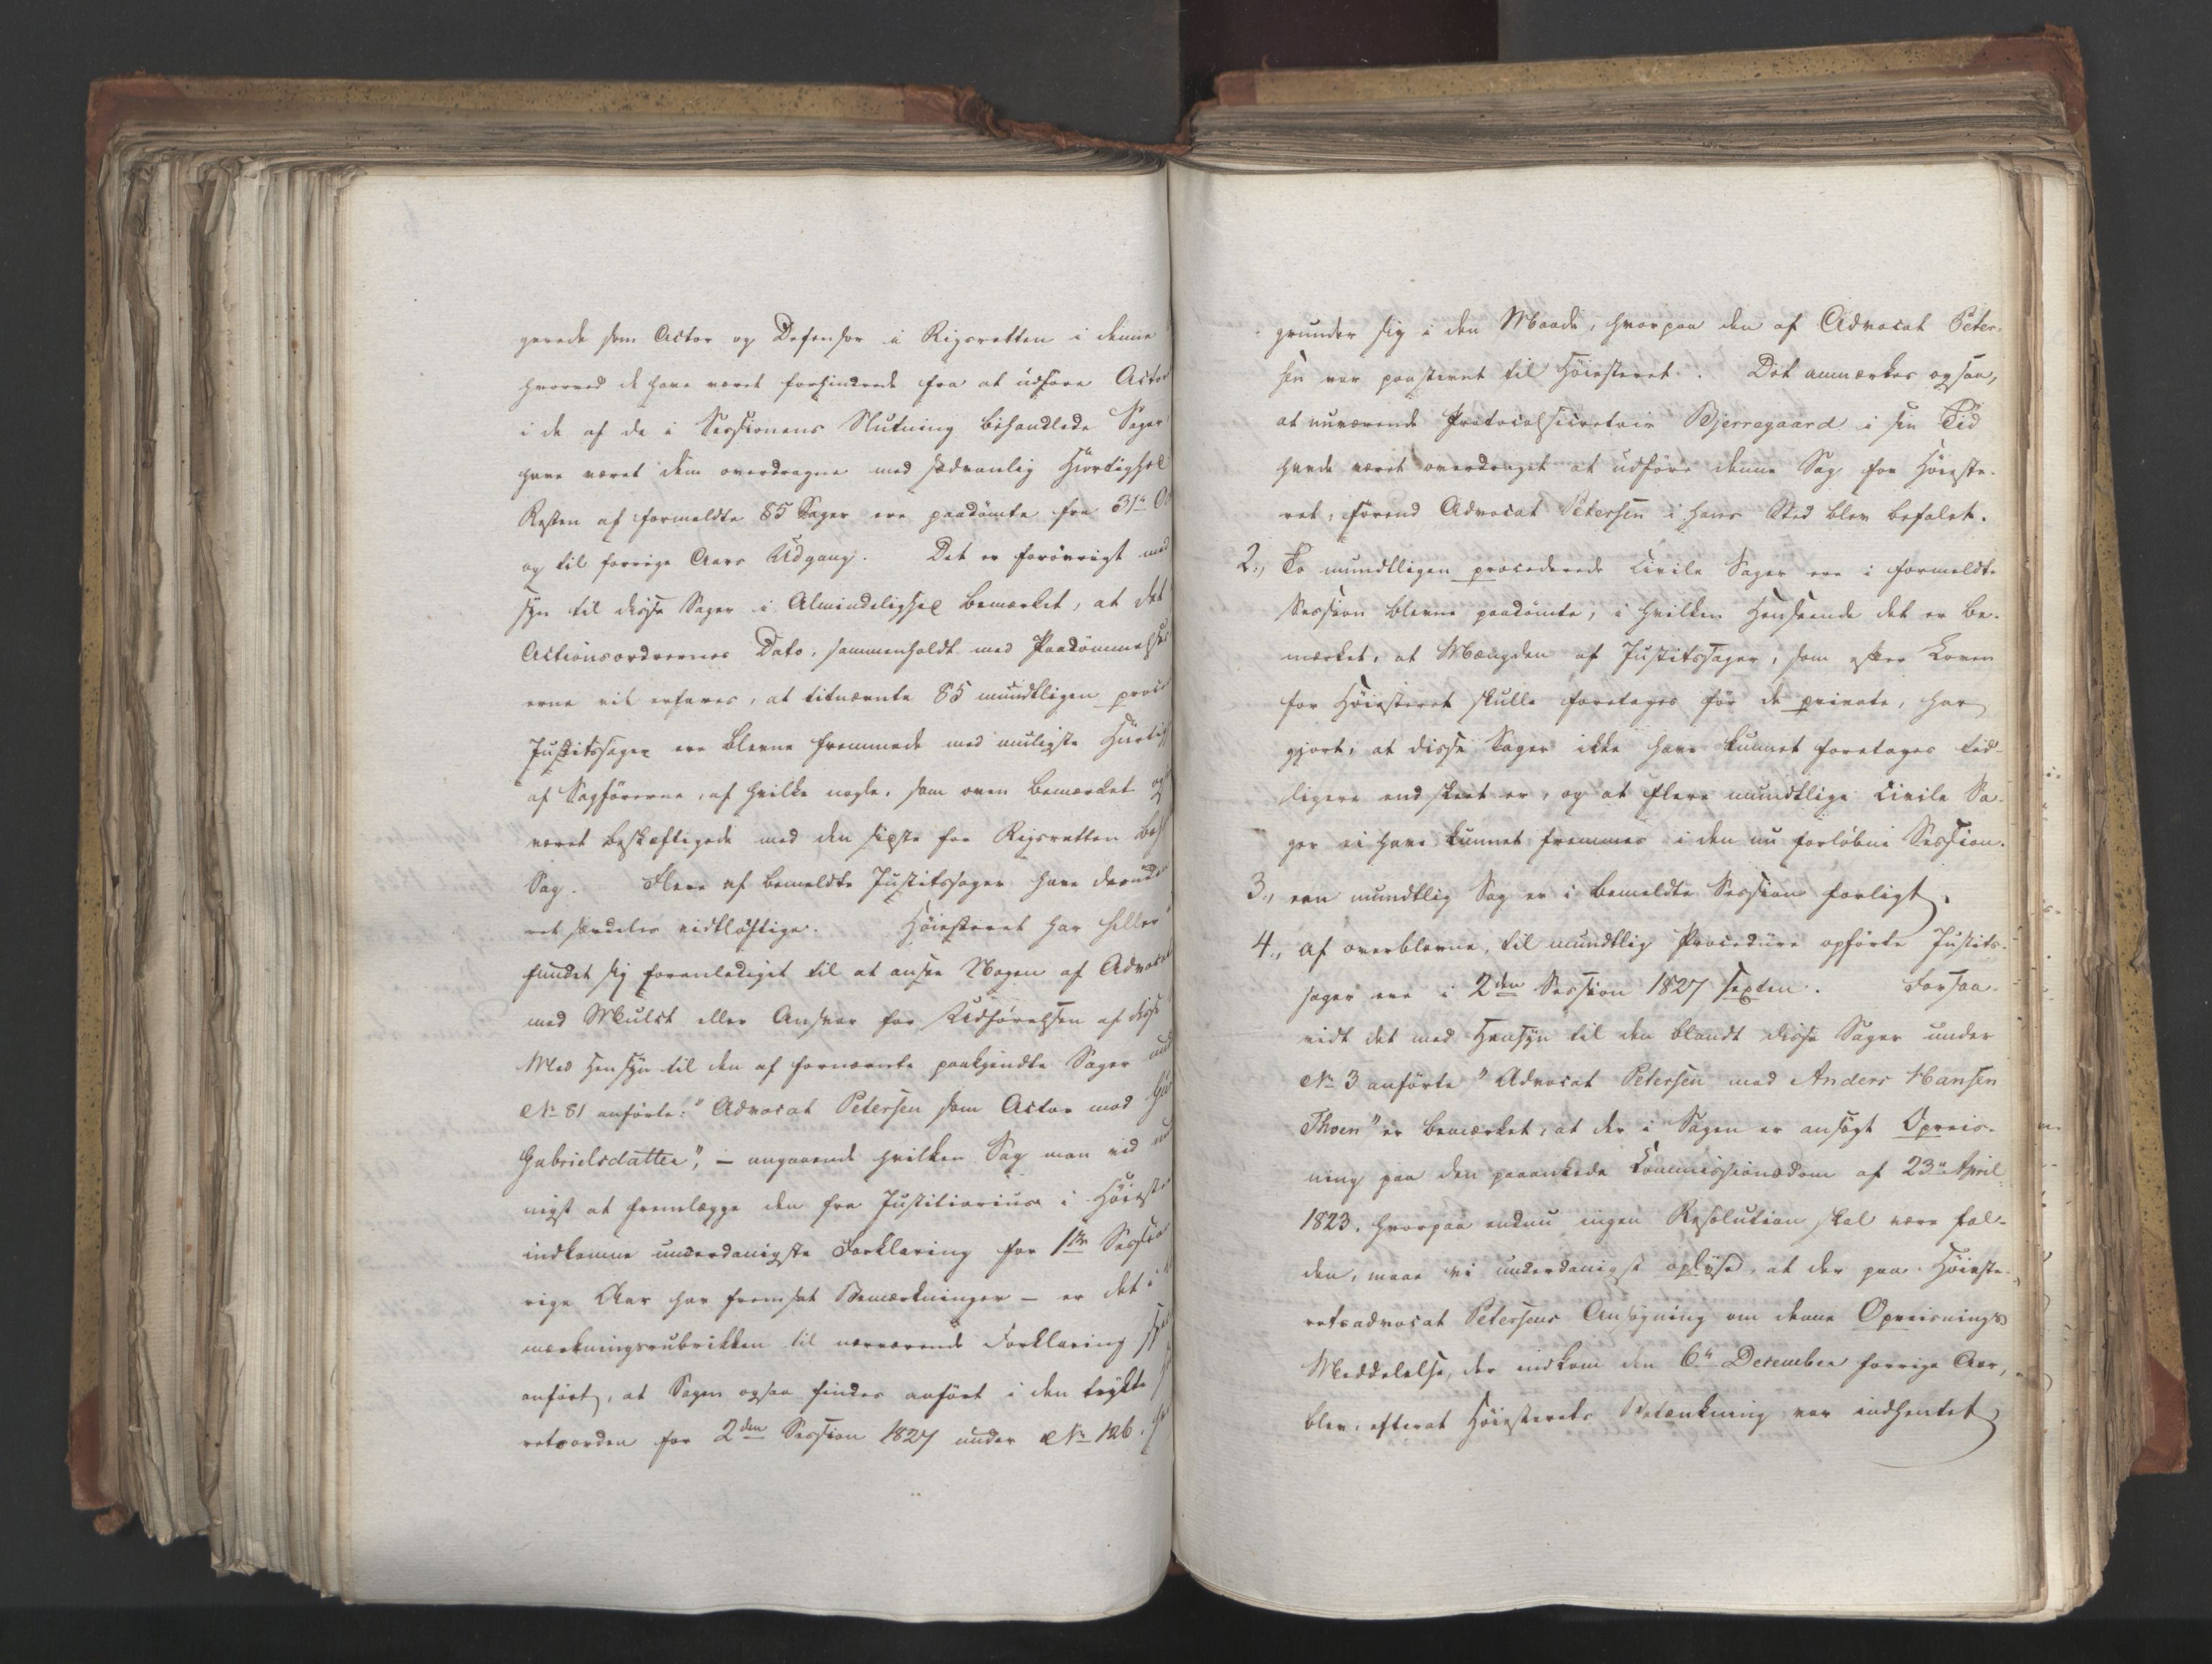 gerede som Actor og Defensor i Rigsretten i denne
hvorved de have været forhindrede fra at udføre Actor
i de af de i Sessionens Slutning behandlede Sager
have været dem overdragne med sædvanlig Hurtighed
Resten af formeldte 85 Sager ere paadømte fra 31te
og til forrige Aars Udgang. Det er forøvrigt med
syn til disse Sager i Almindelighed bemærket, at det
Actionsordrernes Dato, sammenholdt med Paadømmelses
erne vil erfares, at titnævnte 85 mundtligen proce
Justitssager ere blevne fremmede med muligste Hurtig
af Sagførerne, af hvilke nogle, som oven bemærket og
været beskæftigede med den sidste for Rigsretten
Sag. Flere af bemeldte Justitssager have derud
ret særdeles vidtløftige. Høiesteret har heller
fundet sig foranlediget til at ansee Nogen af Advocat
med Mulct eller Ansvar for Udførelsen af disse
Med Hensyn til den af fornævnte paakjendte Sager und
No 81 anførte: "Advocat Petersen som Actor mod
Gabrielsdatter", – angaaende hvilken Sag man ved
nigst at fremlægge den fra Justitiarius i Høieste
indkomne underdanigste Forklaring for 1ste Session
rige Aar har fremsat Bemærkninger – er det i
mærkningsrubrikken til nærværende Forklaring
anført, at Sagen ogsaa findes anført i den trykte
retsorden for 2den Session 1827 under No 126.
grunder sig i den Maade, hvorpaa den af Advocat Peter-
sen var paastevnt til Høiesteret. Det anmærkes ogsaa,
at nuværende Protocolsecretair Bjerregaard i sin Tid
havde været overdraget at udføre denne Sag for Høieste-
ret, førend Advocat Petersen i hans Sted blev befalet.
2., To mundtligen procederede Civile Sager ere i formeldte
Session blevne paadømte, i hvilken Henseende det er be-
mærket, at Mængden af Justitssager, som efter Loven
for Høiesteret skulle foretages før de private, har
gjort, at disse Sager ikke have kunnet foretages tid-
ligere end skeet er, og at flere mundtlige Civile Sa-
ger ei have kunnet fremmes i den nu forløbne Session.
3., een mundtlig Sag er i bemeldte Session forligt.
4., af overblevne, til mundtlig Procedure opførte Justits-
sager ere i 2den Session 1827 sexten. Forsaa-
vidt det med Hensyn til den blandt disse Sager under
No 3 anførte "Advocat Petersen mod Anders Hansen
Thoen" er bemærket, at der i Sagen er ansøgt Opreis-
ning paa den paaankede Commissionsdom af 23de April
1823, hvorpaa endnu ingen Resolution skal være fal-
den, maae vi underdanigst oplyse, at der paa Høieste-
retsadvocat Petersens Ansøgning om denne Opreisnings
Meddelelse, der indkom den 6te December forrige Aar,
blev, efterat Høiesterets Betænkning var indhentet,